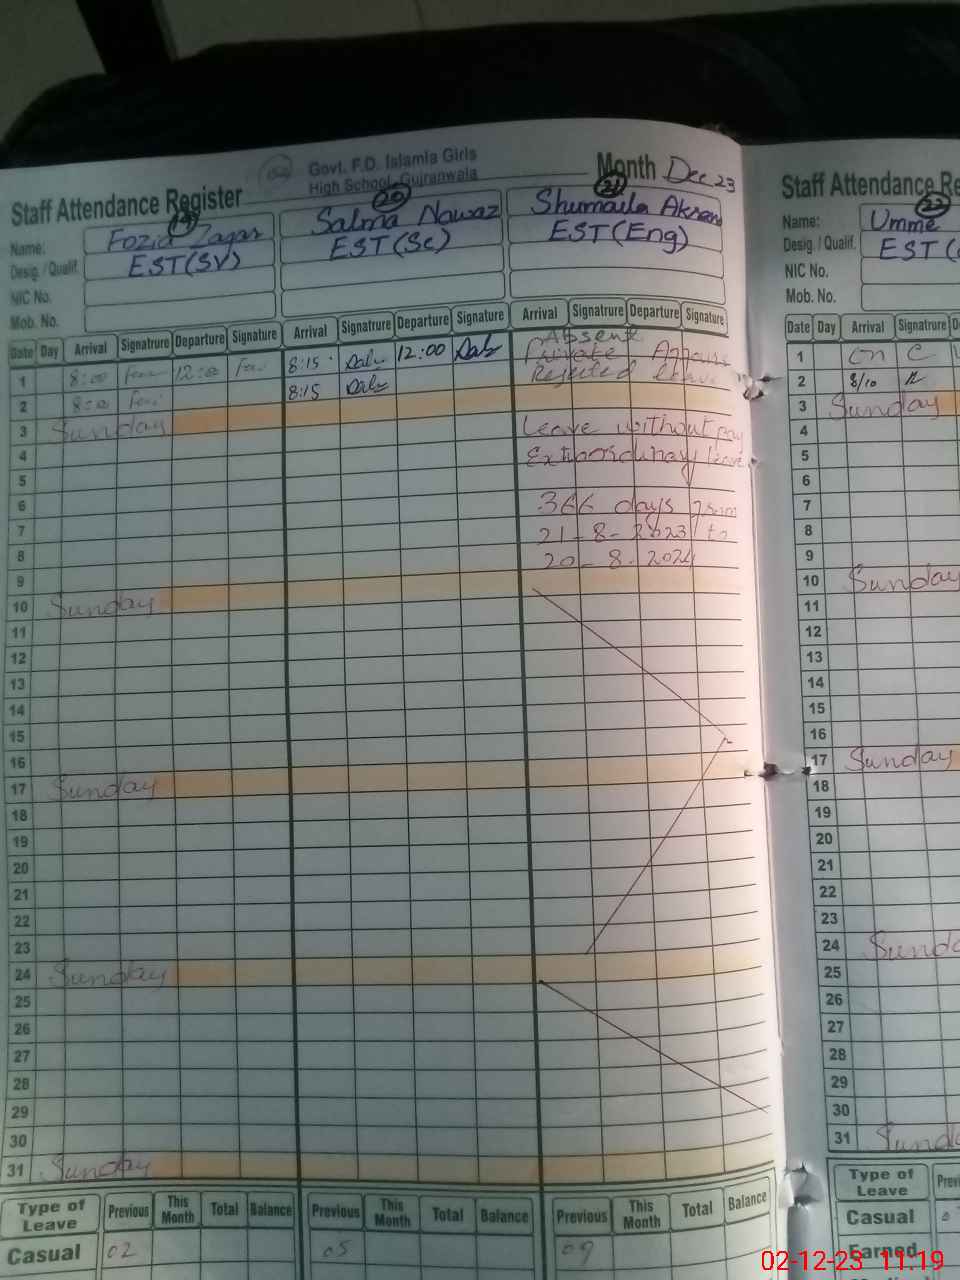 Govt. F.D. Islamia Girls
High School, Gujranwala
Staff Attendance Register
Month Dec 23
19 20 21
Name: Fozia Salma Nawaz Shumaila Akram
Desig. / Qualif. EST(SV) EST(Sc) EST(Eng)
NIC No.
Mob. No.
Date Day Arrival Signatrure Departure Signature Arrival Signatrure Departure Signature Arrival Signatrure Departure Signature
Absent
1 8:00 12:00 8:15 12:00 Private
Rejected leave
2 8:00 8:15
3 Sunday
4 Leave without pay
5 Extraordinary leave
6
7 366 days from
8 21-8-2023 to
9 20-8-2024
10 Sunday
11
12
13
14
15
16
17 Sunday
18
19
20
21
22
23
24 Sunday
25
26
27
28
29
30
31 Sunday
Type of Leave Previous This Month Total Balance Previous This Month Total Balance Previous This Month Total Balance
Casual 02 05 09
Staff Attendance Re
22
Name: Umme
Desig. / Qualif. EST(
NIC No.
Mob. No.
Date Day Arrival Signatrure D
1
2 8/10
3 Sunday
4
5
6
7
8
9
10 Sunday
11
12
13
14
15
16
17 Sunday
18
19
20
21
22
23
24 Sunda
25
26
27
28
29
30
31 Sund
Type of Leave Previ
Casual
Earned
02-12-23 11:19